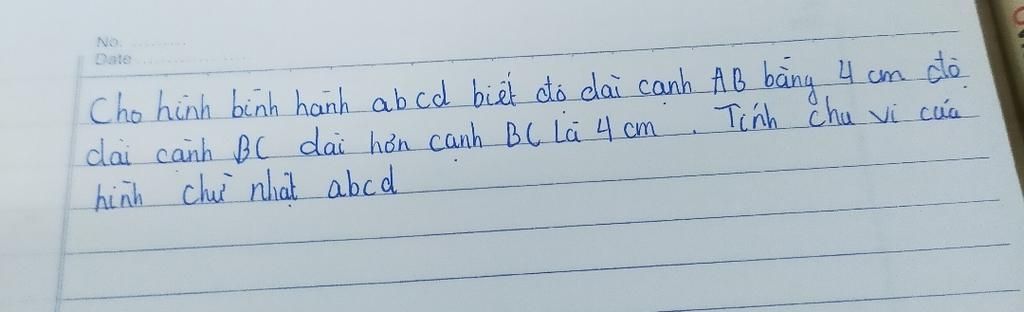 No. ............
Date ....................
Cho hình bình hành abcd biết độ dài cạnh AB bằng 4 cm độ
dài cạnh BC dài hơn cạnh BC là 4 cm . Tính chu vi của
hình chữ nhật abcd